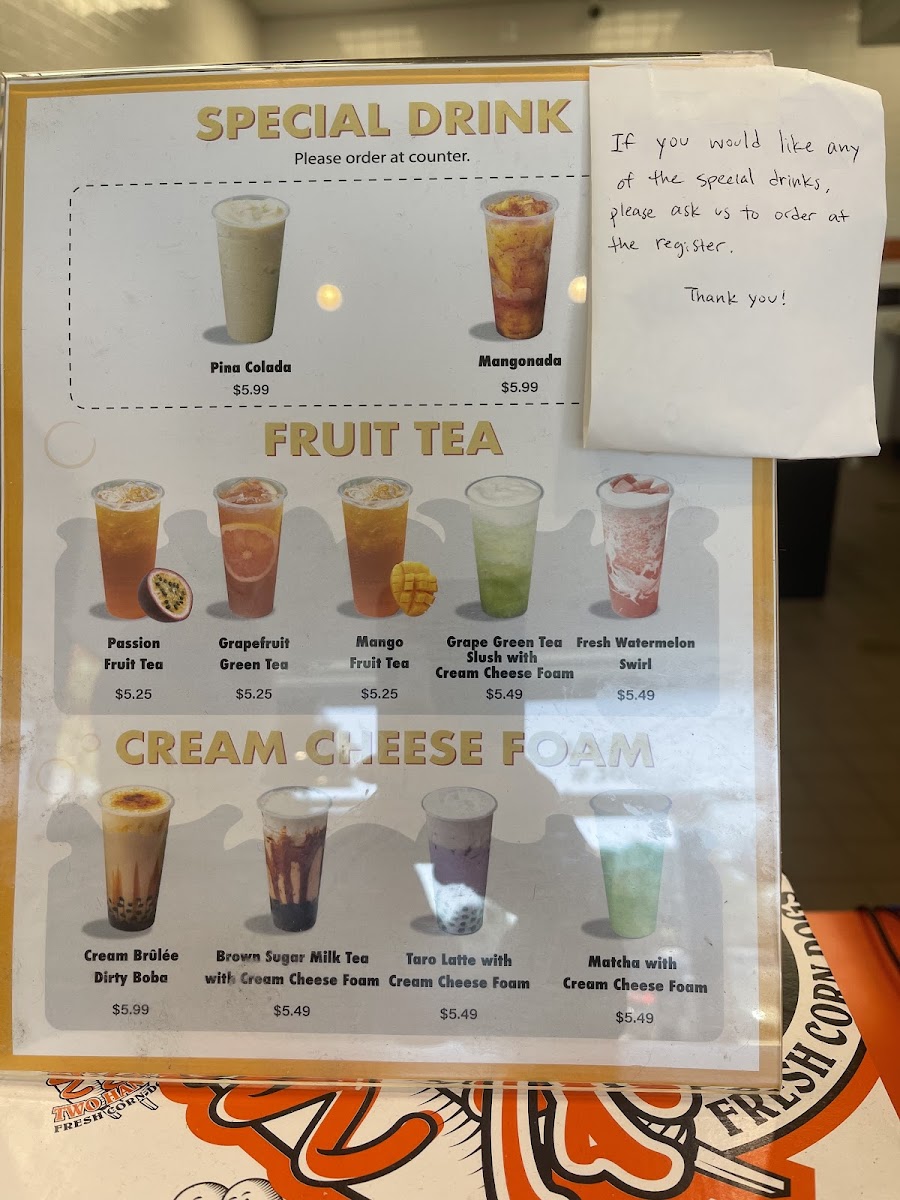 SPECIAL DRINK
Please order at counter.
If you would like any
of the special drinks,
please ask us to order at
the register.
Thank you!
Pina Colada
$5.99
Mangonada
$5.99
FRUIT TEA
Passion
Fruit Tea
$5.25
Grapefruit
Green Tea
$5.25
Mango
Fruit Tea
$5.25
Grape Green Tea
Slush with
Cream Cheese Foam
$5.49
Fresh Watermelon
Swirl
$5.49
CREAM CHEESE FOAM
Cream Brûlée
Dirty Boba
$5.99
Brown Sugar Milk Tea
with Cream Cheese Foam
$5.49
Taro Latte with
Cream Cheese Foam
$5.49
Matcha with
Cream Cheese Foam
$5.49
TWO HAN
FRESH CORN-DO
FRESH CORN DOGS